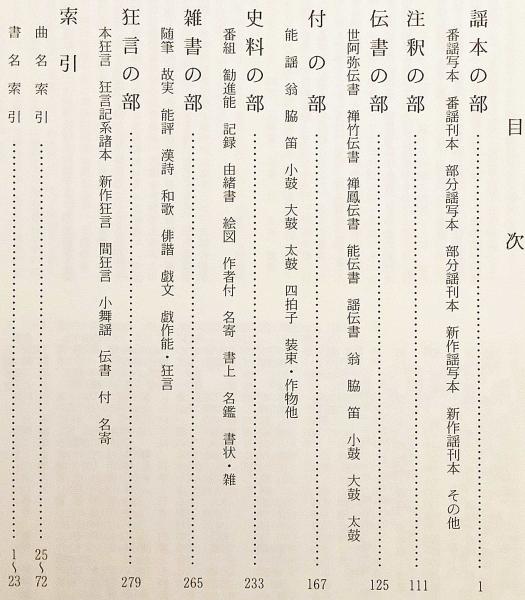 目次
謡本の部 1
番謡写本 番謡刊本 部分謡写本 部分謡刊本 新作謡写本 新作謡刊本 その他
注釈の部 111
伝書の部 125
世阿弥伝書 禅竹伝書 禅鳳伝書 能伝書 謡伝書 翁 脇 笛 小鼓 大鼓 太鼓
付の部 167
能 謡 翁 脇 笛 小鼓 大鼓 太鼓 四拍子 装束・作物他
史料の部 233
番組 勧進能 記録 由緒書 絵図 作者付 名寄 書上 名鑑 書状・雑
雑書の部 265
随筆 故実 能評 漢詩 和歌 俳諧 戯文 戯作能・狂言
狂言の部 279
本狂言 狂言記系諸本 新作狂言 間狂言 小舞謡 伝書 付 名寄
索引
曲名索引 25〜72
書名索引 1〜23